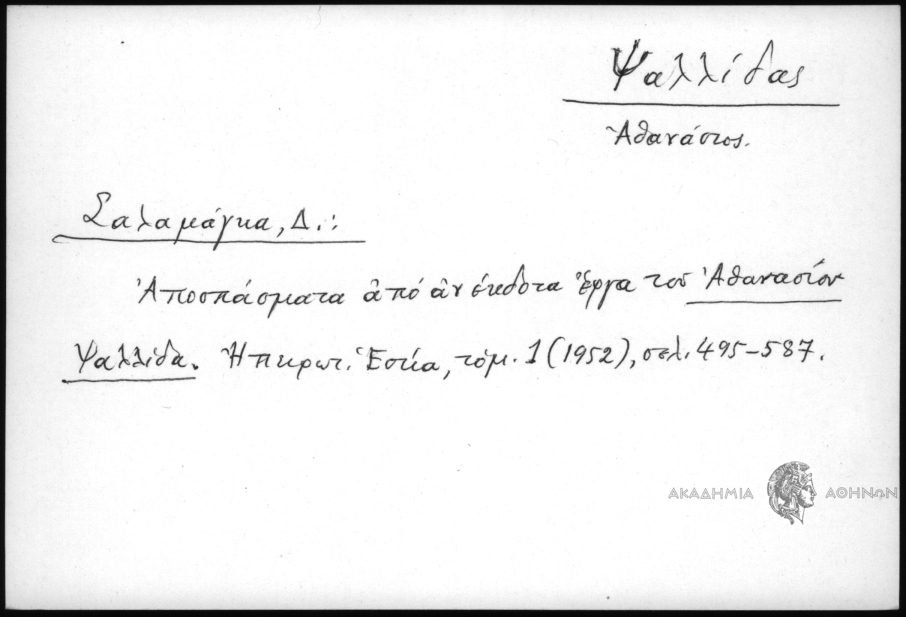 Ψαλλίδας
Ἀθανάσιος.
Σαλαμάγκα, Δ.:
Ἀποσπάσματα ἀπό ἀνέκδοτα ἔργα τοῦ Ἀθανασίου
Ψαλλίδα. Ἠπειρωτ. Ἑστία, τόμ. 1 (1952), σελ. 495-587.
ΑΚΑΔΗΜΙΑ ΑΘΗΝΩΝ